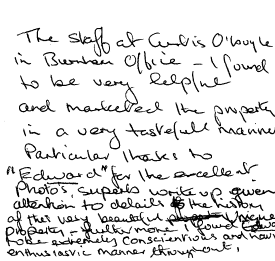 The staff at Curtis O'Boyle
in Burnham Office - I found
to be very helpful
and marketed the property
in a very tastefull manner
Particular thanks to
"Edward" for the excellent
Photo's, superb write up given
attention to details & the history
of this very beautiful Unique
property - furthermore I found Edward
to be extremely conscientious and having
enthusiastic manner throughout.